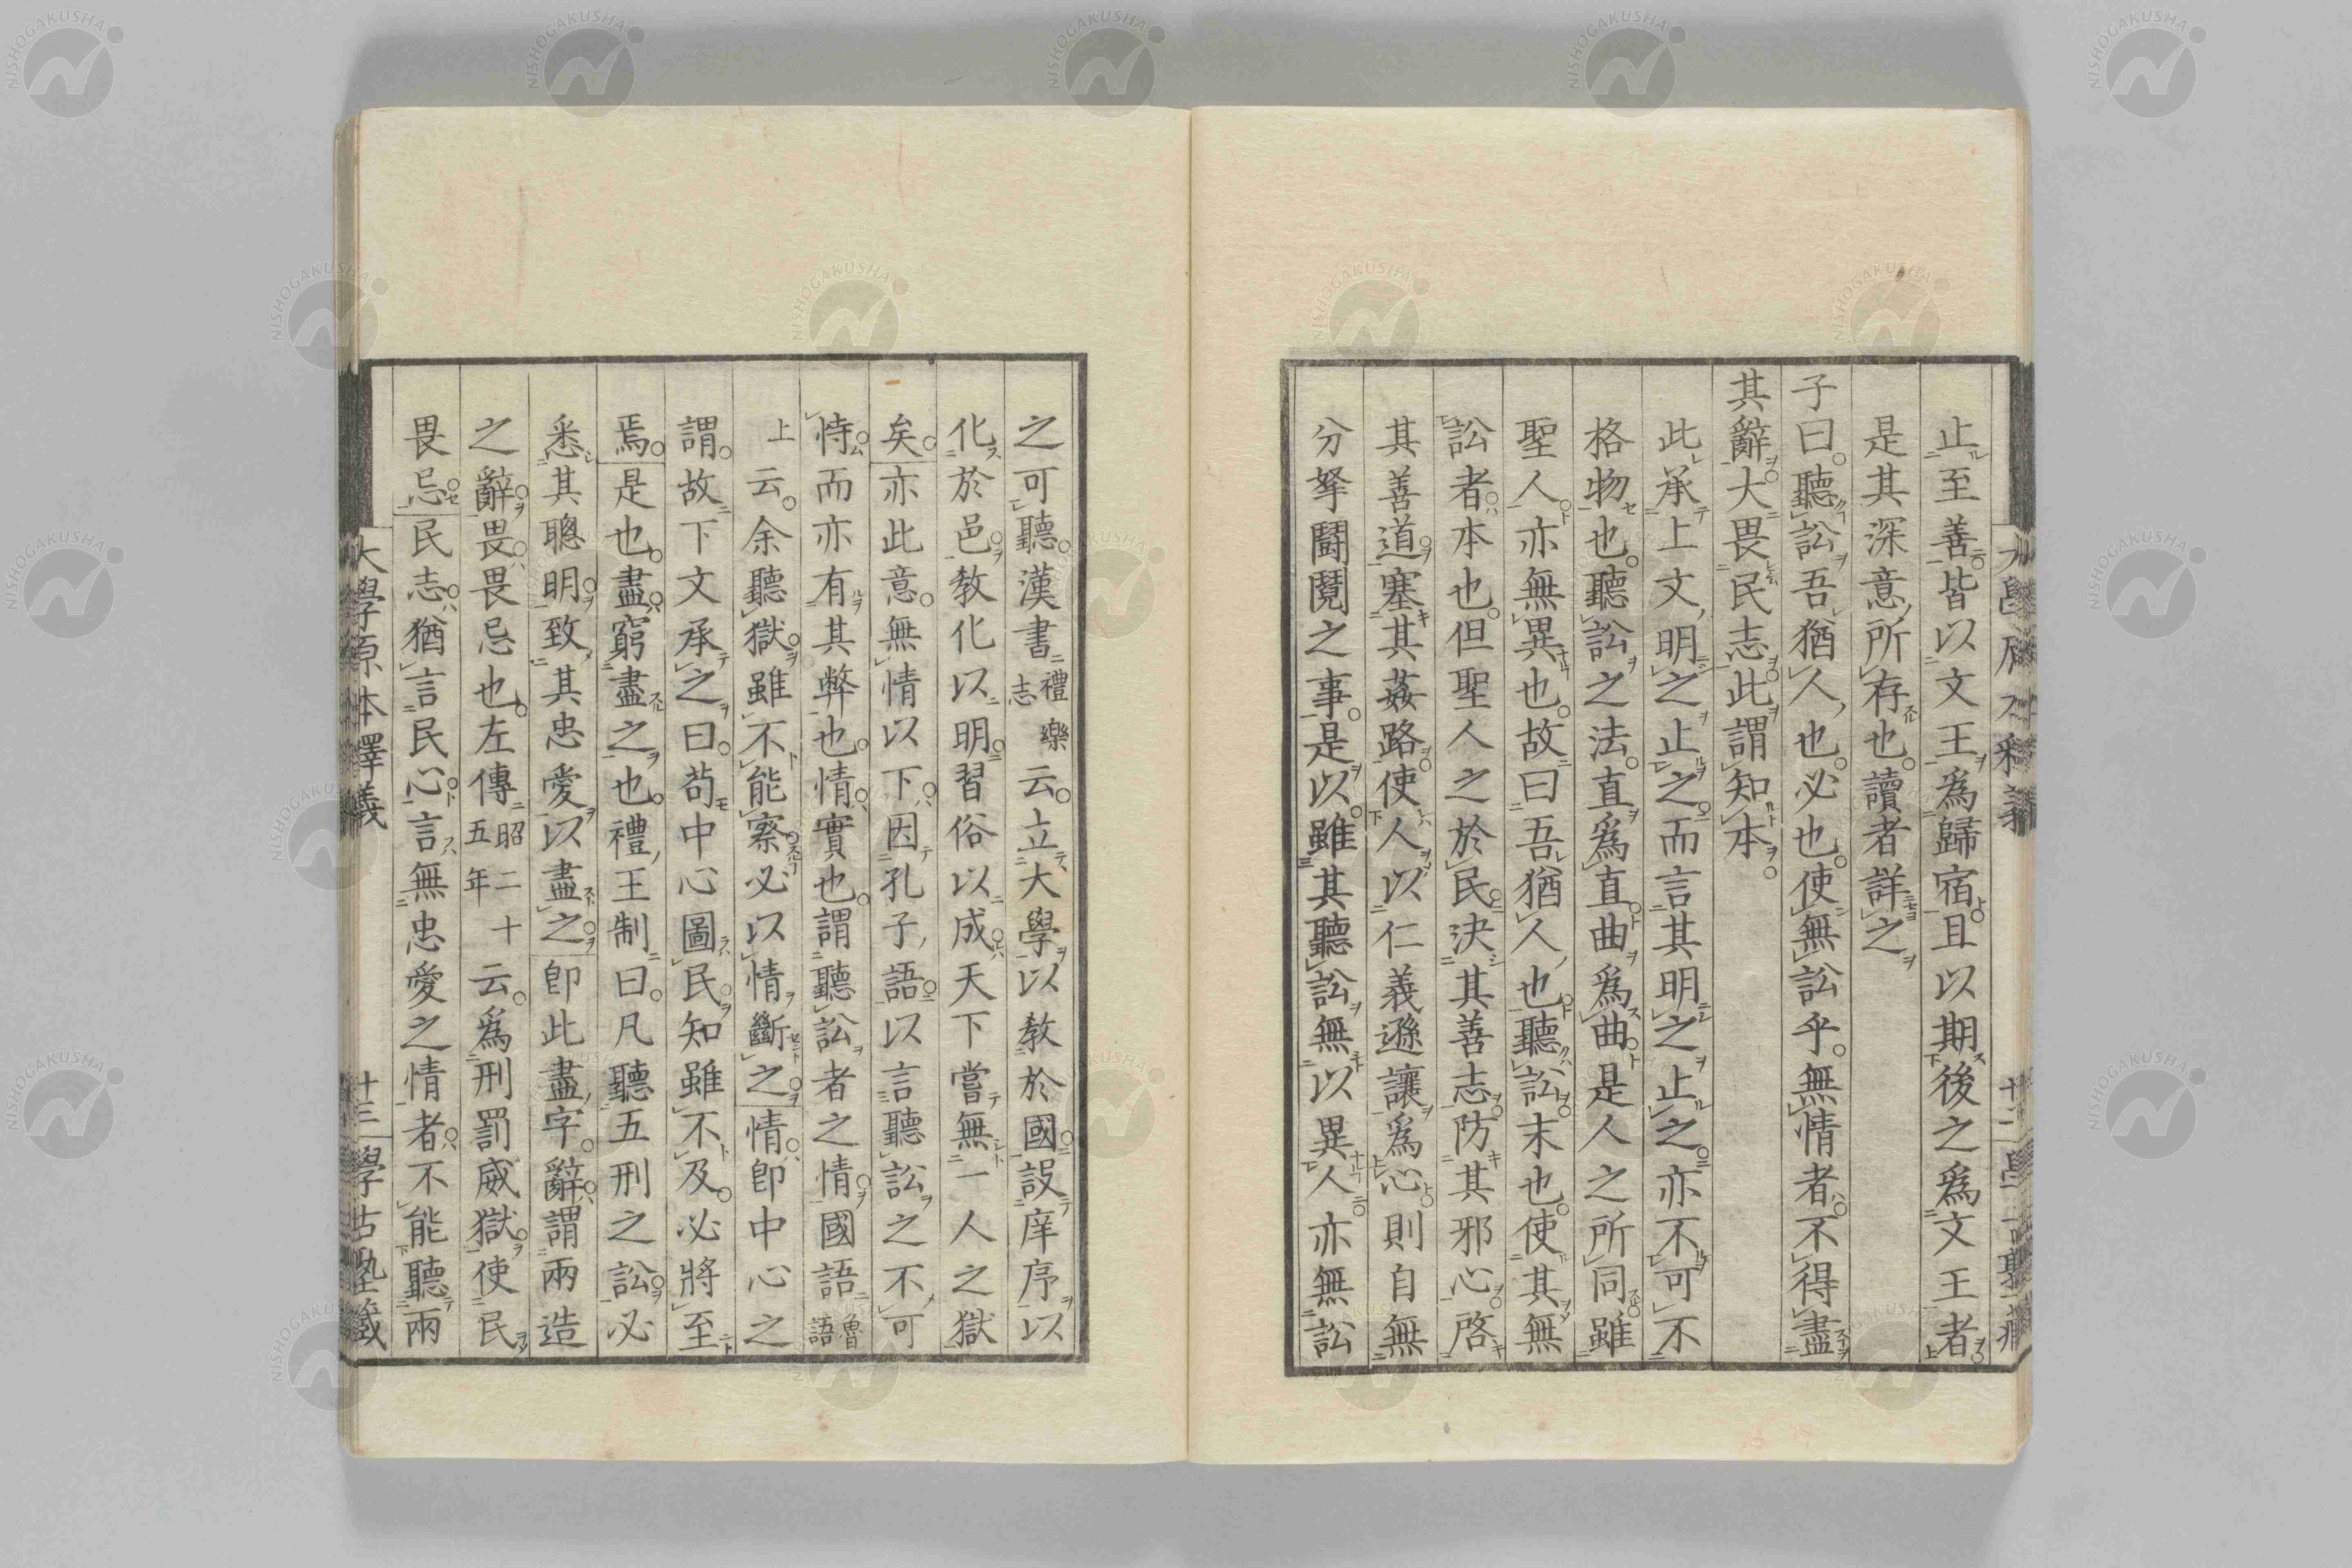 止至善皆以文王爲歸宿且以期後之爲文王者
是其深意所存也讀者詳之
子曰聽訟吾猶人也必也使無訟乎無情者不得盡
其辭大畏民志此謂知本
此承上文明之止之而言其明之止之亦不可不
格物也聽訟之法直爲直曲爲曲是人之所同雖
聖人亦無異也故曰吾猶人也聽訟末也使其無
訟者本也但聖人之於民決其善志防其邪心啓
其善道塞其姦路使人以仁義遜讓爲心則自無
分拏鬪鬩之事是以雖其聽訟無以異人亦無訟
之可聽漢書禮樂志云立大學以教於國設庠序以
化於邑教化以明習俗以成天下嘗無一人之獄
矣亦此意無情以下因孔子語以言聽訟之不可
恃而亦有其弊也情實也謂聽訟者之情國語魯語
上云余聽獄雖不能察必以情斷之情卽中心之
謂故下文承之曰苟中心圖民知雖不及必將至
焉是也盡窮盡之也禮王制曰凡聽五刑之訟必
悉其聰明致其忠愛以盡之卽此盡字辭謂兩造
之辭畏畏忌也左傳昭二十五年云爲刑罰威獄使民
畏忌民志猶言民心言無忠愛之情者不能聽兩
大學原本釋義 十三 學古塾藏
NISHOGAKUSHA